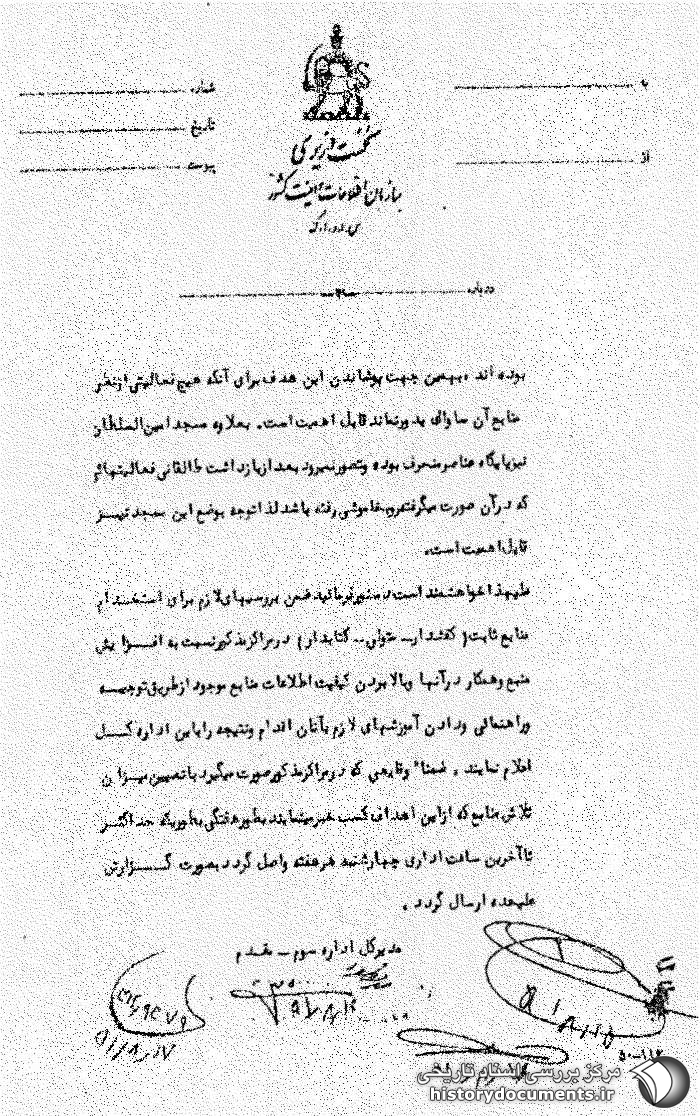 شماره
تاریخ
پیوست
به
از
نخست وزیری
سازمان اطلاعات و امنیت کشور
س.ا.و.ا.ک
درباره ــ۲ــ
بوده اند ، بهمین جهت پوشاندن این هدف برای آنکه هیچ فعالیتی از نظر
منابع آن ساواک بدور نماند قابل اهمیت است . بعلاوه مسجد امین السلطان
نیز پایگاه عناصر منحرف بوده و تصور نمیرود بعد از بازداشت طالقانی فعالیتهائی
که در آن صورت میگرفته رو بخاموشی رفته باشد لذا توجه بوضع این مسجد نیـــز
قابل اهمیت است .
علیهذا خواهشمند است دستور فرمائید ضمن بررسیهای لازم برای استخـــدام
منابع ثابت ( کفشدار ــ متولی ــ کتابدار ) در مراکز مذکور نسبت به افـــزایش
منبع و همکار در آنها و بالا بردن کیفیت اطلاعات منابع موجود از طریق توجیـــه
و راهنمائی و دادن آموزشهای لازم بآنان اقدام و نتیجه را باین اداره کـــل
اعلام نمایند . ضمناً وقایعی که در مراکز مذکور صورت میگیرد با تعیین میـــزان
تلاش منابع که از این اهداف کسب خبر مینمایند بطور هفتگی بطوریکه حداکثـــر
تا آخرین ساعت اداری چهارشنبه هر هفته واصل گردد بصورت گـــزارش
علیحده ارسال گردد .
مدیرکل اداره سوم ــ مقدم
۵۱/۸/۱۷
۵۰-۱۱۲
مرکز بررسی اسناد تاریخی
historydocuments.ir